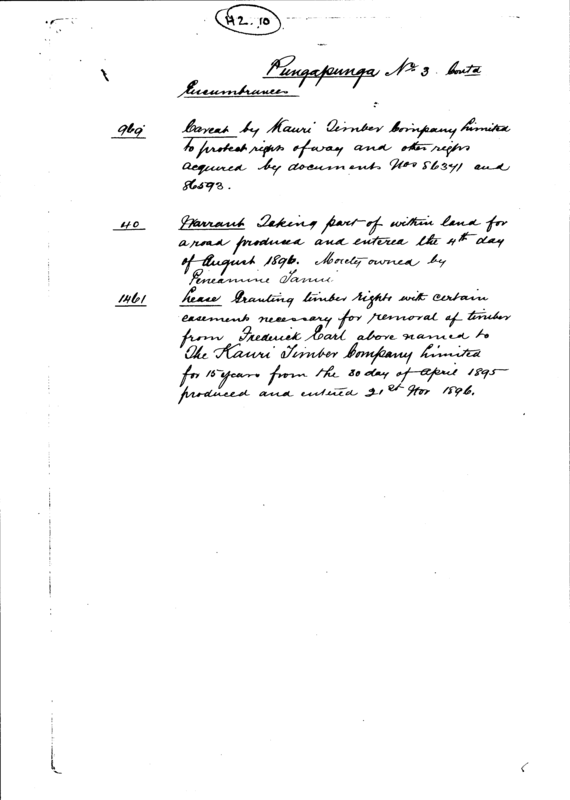 H2.10
Pungapunga No 3. Contd
Encumbrances
969 Caveat by Kauri Timber Company Limited
to protect rights of way and other rights
acquired by documents Nos 86341 and
86593.
40 Warrant Taking part of within land for
a road produced and entered the 4th day
of August 1896. Moiety owned by
Peneamine
1461 Lease Granting timber rights with certain
easements necessary for removal of timber
from Frederick Earl above named to
The Kauri Timber Company Limited
for 15 years from the 30 day of April 1895
produced and entered 21st Nov 1896.